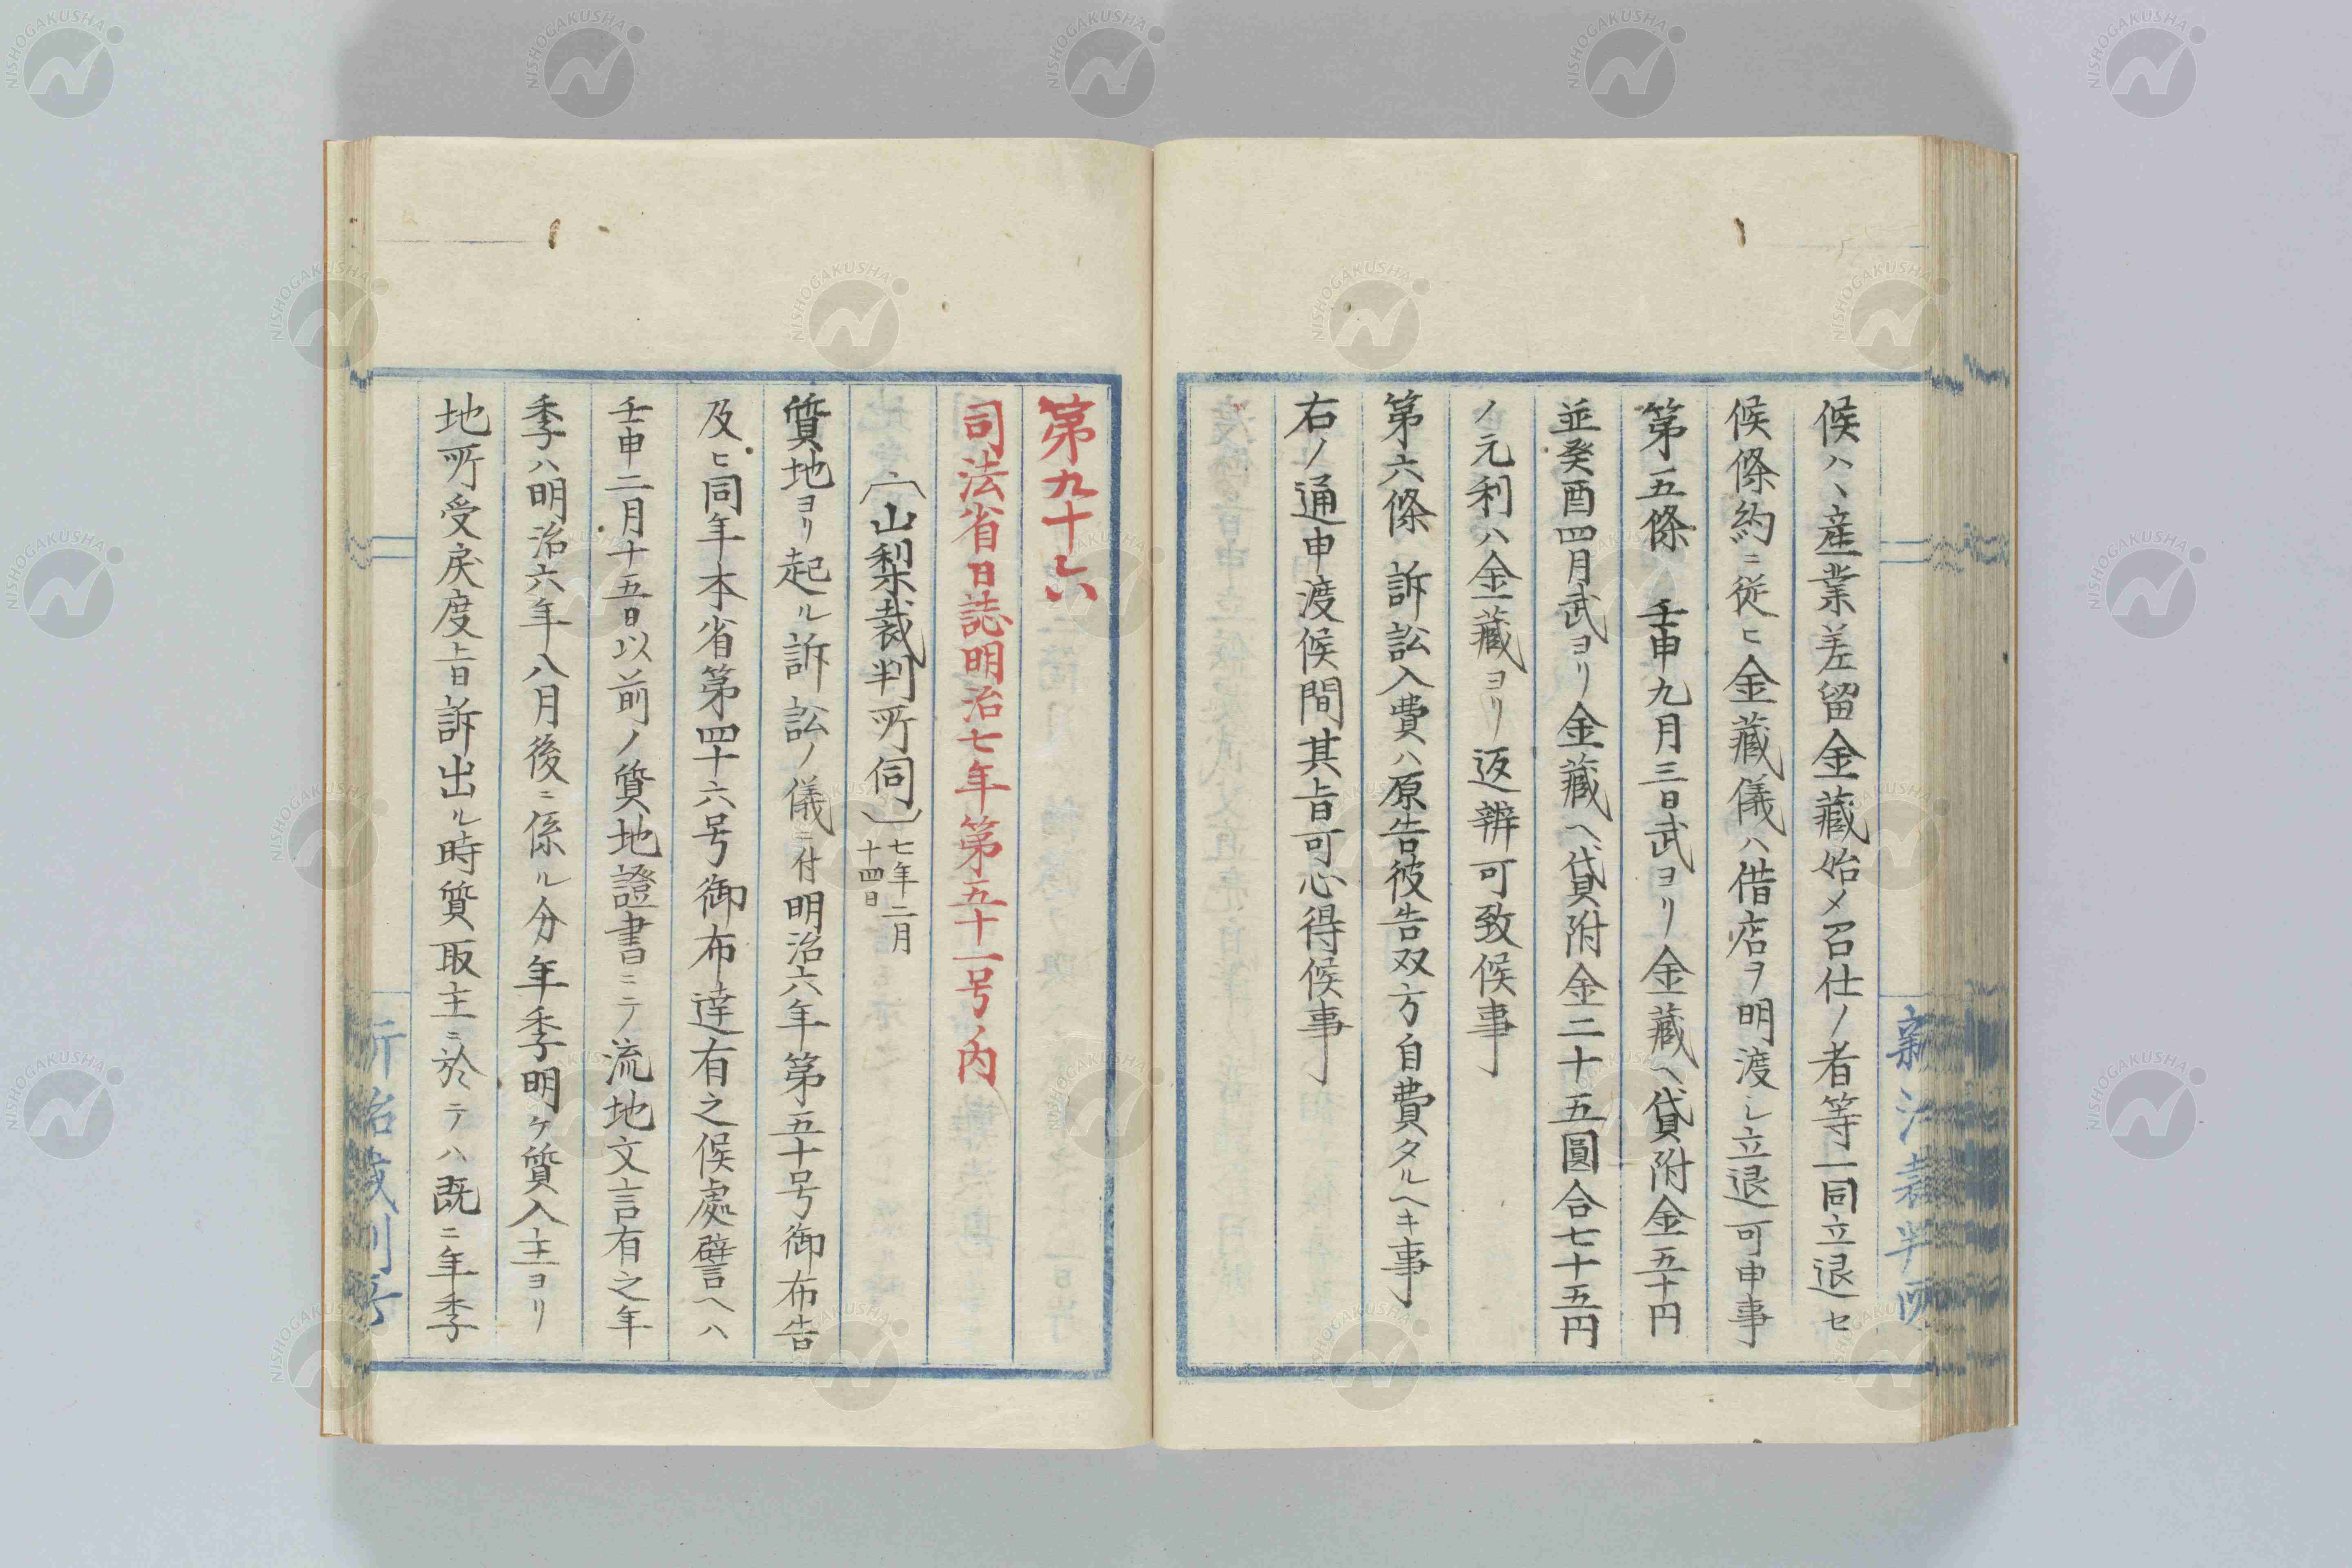 候ハヽ産業差留金藏始メ召仕ノ者等一同立退セ
候條約ニ従ヒ金藏儀ハ借店ヲ明渡シ立退可申事
第五條 壬申九月三日武ヨリ金藏ヘ貸附金五十円
並癸酉四月武ヨリ金藏ヘ貸附金二十五圓合七十五円
ノ元利ハ金藏ヨリ返辨可致候事
第六條 訴訟入費ハ原告彼告双方自費タルヘキ事
右ノ通申渡候間其旨可心得候事
第九十六
司法省日誌明治七年第五十一号ノ内
(山梨裁判所伺)七年二月
十四日
質地ヨリ起ル訴訟ノ儀ニ付明治六年第五十号御布告
及ヒ同年本省第四十六号御布達有之候處譬ヘハ
壬申二月十五日以前ノ質地證書ニテ流地文言有之年
季ハ明治六年八月後ニ係ル分年季明ケ質入主ヨリ
地所受戻度旨訴出ル時質取主ニ於テハ既ニ年季
新治裁判所
NISHOGAKUSHA